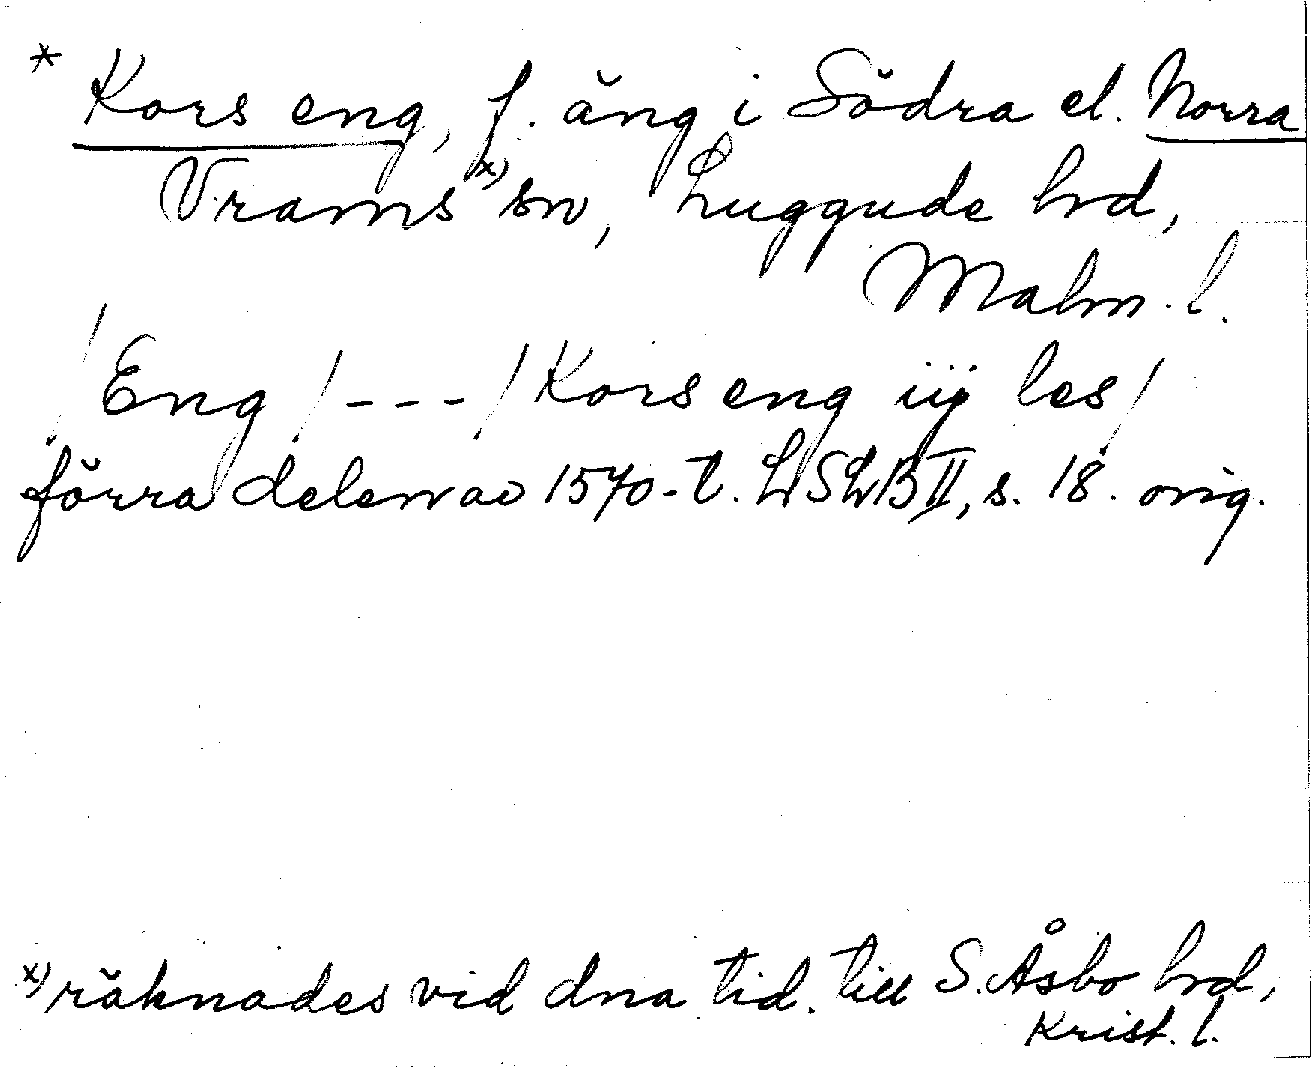 * Kors eng, f. äng i Södra el. Norra
Vrams x) sn, Luggude hd,
Malm. l.
/Eng/ --- /Kors eng iij les/
förra delen av 1570-t. LSLB II, s. 18. orig.
x) räknades vid dna tid. till S. Åsbo hd,
Krist. l.